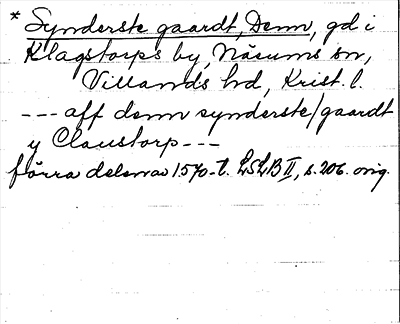 * Synderste gaardt, Denn, gd i
Klagstorps by, Näsums sn,
Villands hd, Krist. l.
--- aff denn synderste/gaardt
y Claustorp ---
förra delen av 1570-t. LSLB II, s. 206. orig.